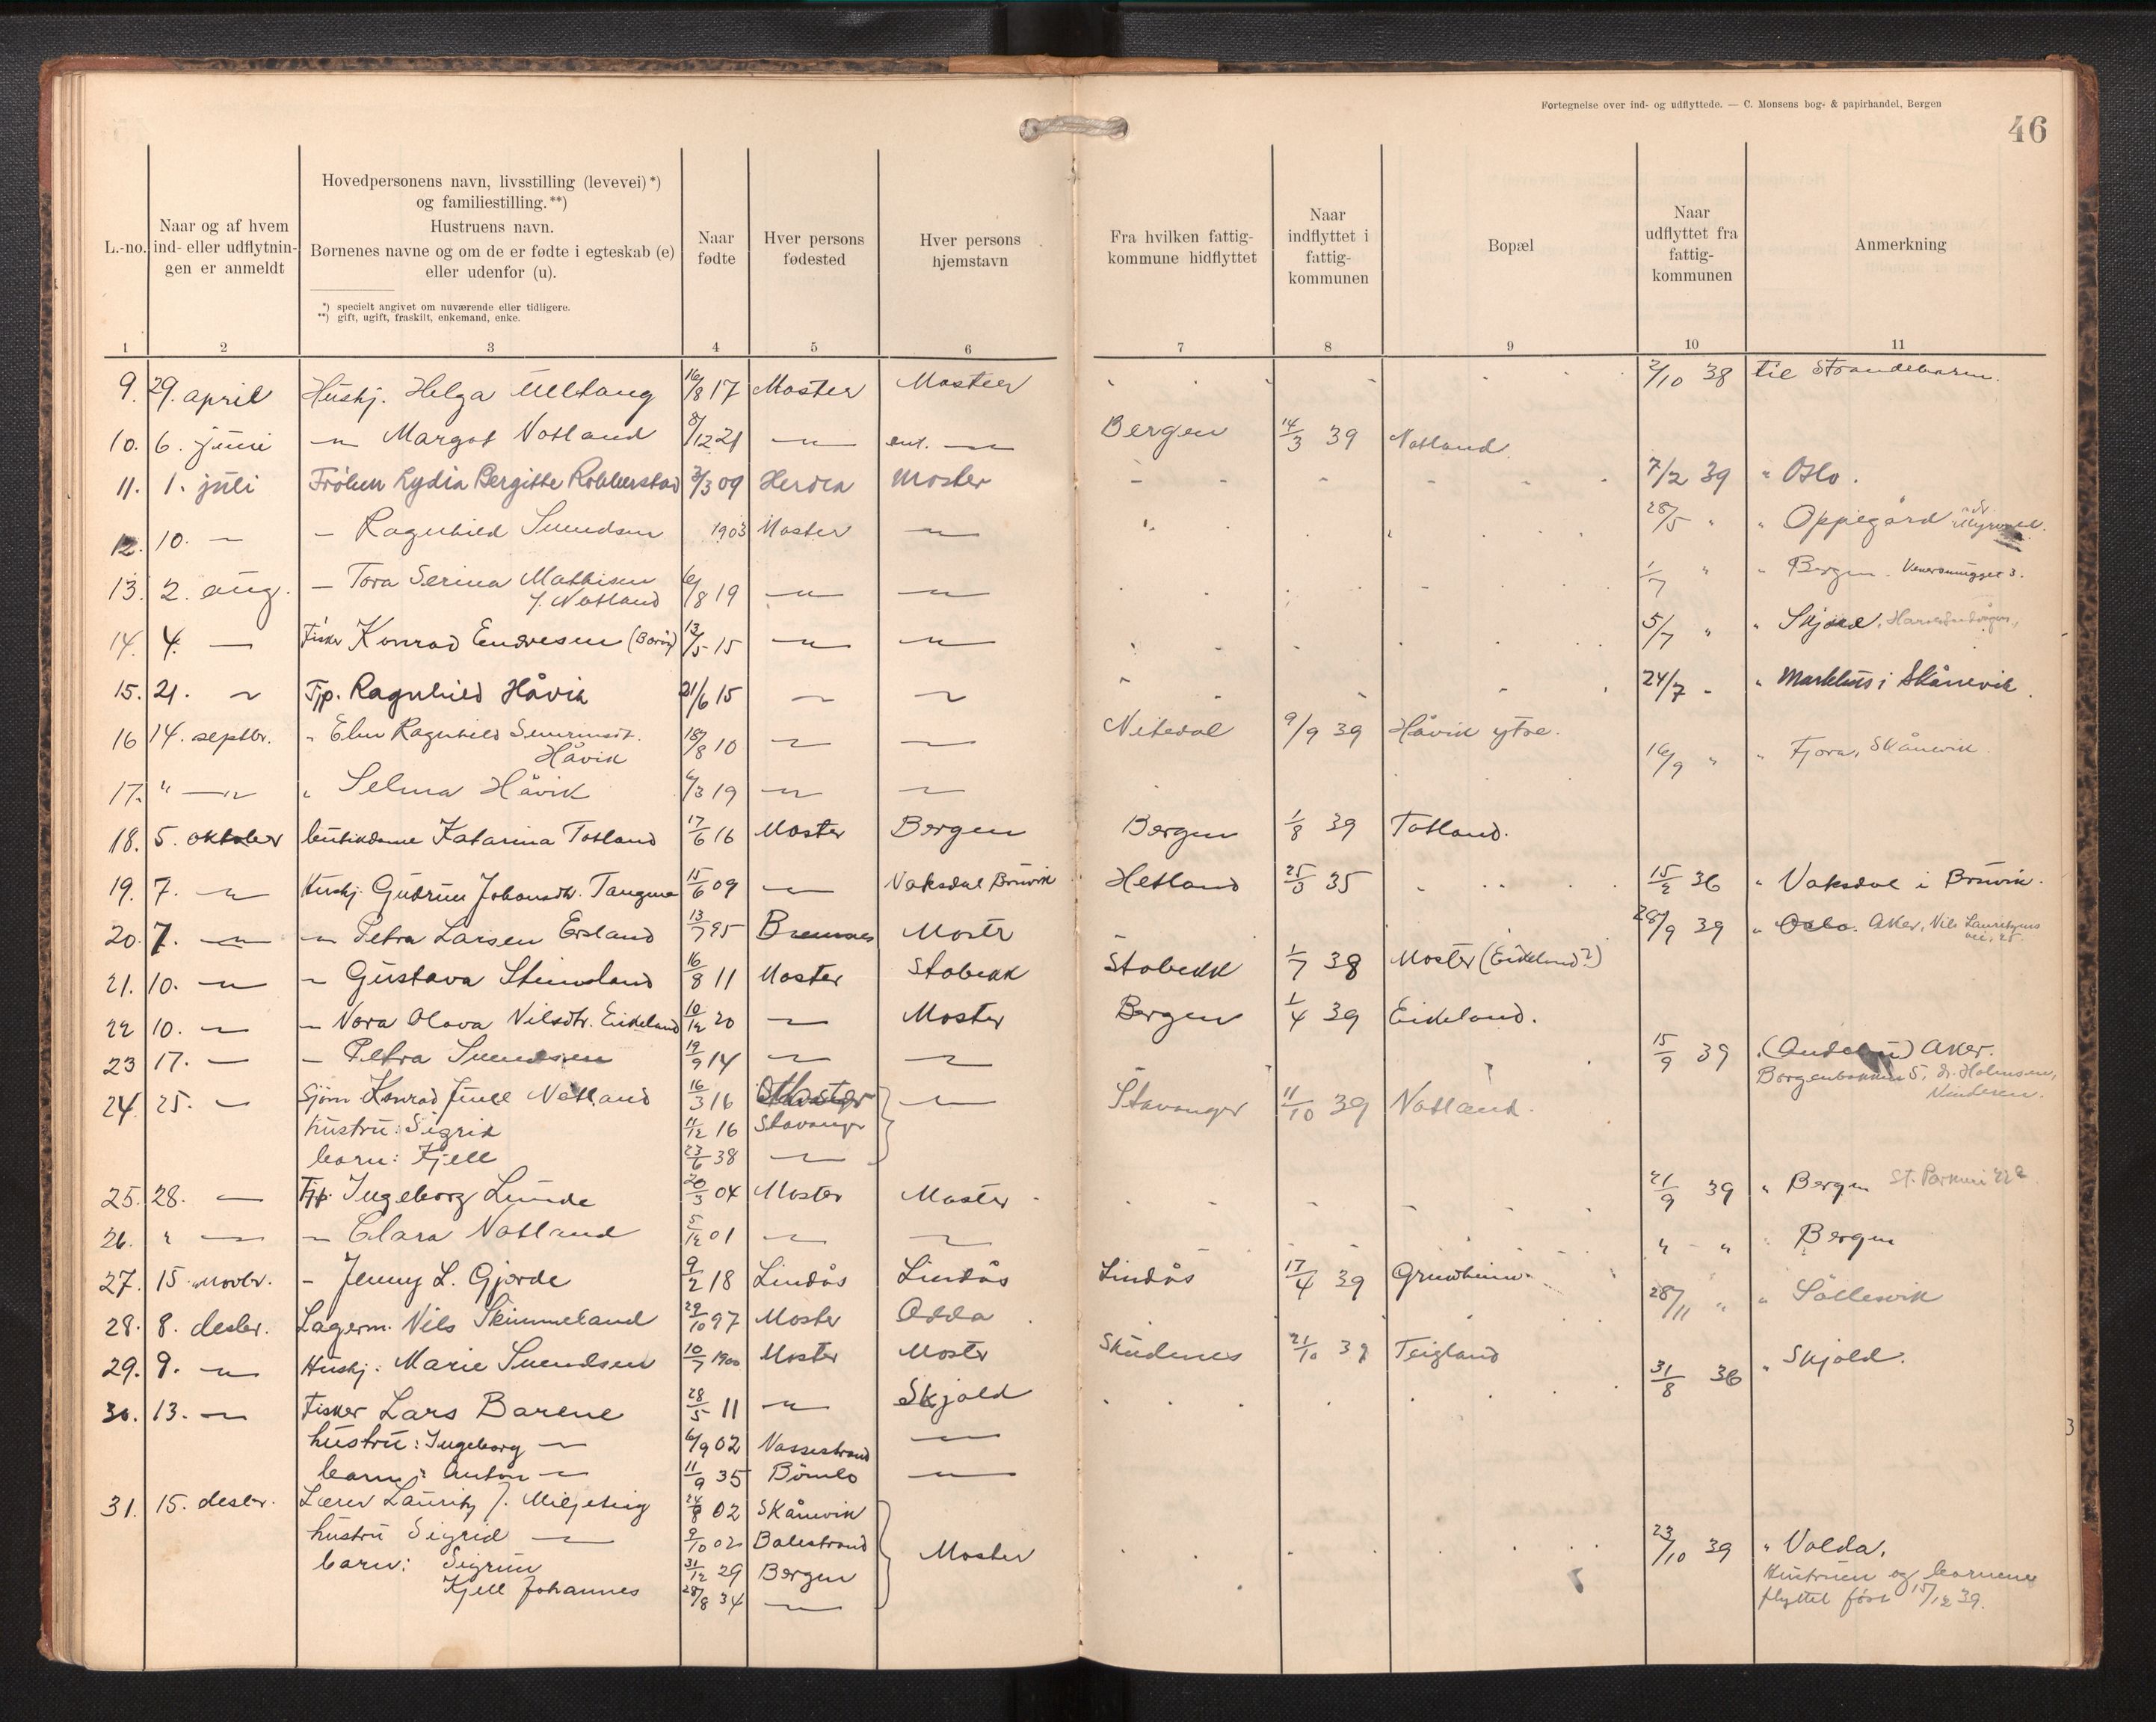 Fortegnelse over ind- og udflyttede. — C. Monsens bog- & papirhandel, Bergen
46
L.-no.
Naar og af hvem
ind- eller udflytnin-
gen er anmeldt
Hovedpersonens navn, livsstilling (levevei)*)
og familiestilling.**)
Hustruens navn.
Børnenes navne og om de er fødte i egteskab (e)
eller udenfor (u).
*) specielt angivet om nuværende eller tidligere.
**) gift, ugift, fraskilt, enkemand, enke.
Naar
fødte
Hver persons
fødested
Hver persons
hjemstavn
Fra hvilken fattig-
kommune hidflyttet
Naar
indflyttet i
fattig-
kommunen
Bopæl
Naar
udflyttet fra
fattig-
kommunen
Anmerkning
1 2 3 4 5 6 7 8 9 10 11
9. 29. april Hushj. Helga Ulltang 16/8 17 Moster Moster 2/10 38 til Strandebarm.
10. 6. juni — Margot Notland 8/12 21 — — Bergen 14/3 39 Notland
11. 1. juli Frøken Lydia Bergitte Robberstad 3/3 09 Herøen Moster 7/2 39 " Oslo.
12. 10. — — Ragnhild Svendsen 1903 Moster — 28/5 " " Oppegård
13. 2. aug. — Tora Serina Mathisen 6/8 19 — — 1/7 " " Bergen.
f. Notland
14. 4. — Fisker Konrad Endresen 13/5 15 — — 5/7 " " Skjold,
15. 21. — Tjp. Ragnhild Håvik 21/6 15 — — 24/7 " " i Skånevik.
16 14. septbr. " Ragnhild 18/8 10 — — Nitedal 9/9 39 Håvik ytre.
Håvik 16/9 " " Fjora, Skånevik.
17. " — " Selma Håvik 6/3 19 — —
18. 5. oktober Katarina Totland 17/6 16 Moster Bergen Bergen 1/8 39 Totland.
19. 7. — Hushj. Gudrun Johansdtr. 15/6 09 — Vaksdal Bruvik Hetland 25/3 35 15/2 36 " Vaksdal i Bruvik.
20. 7. — — Petra Larsen Ersland 13/7 95 Bremnes Mostr 28/9 39 " Oslo. Aker, Nils
21. 10. — — Gustava 16/8 11 Moster Stabekk Stabekk 1/7 38 Moster (Eikeland?)
22 10. — — Nora Olava Nilsdtr. Eikeland 10/12 20 — Moster Bergen 1/4 39 Eikeland.
23 17. — — Petra Svendsen 19/9 14 — — 15/9 39 Aker.
24. 25. — Sjøm Konrad Juell Notland 16/3 16 Moster — Stavanger 11/10 39 Notland.
hustru: Sigrid 11/12 16 Stavanger
barn: Kjell 23/6 38 —
25. 28. — Tjp. Ingeborg Lunde 20/3 04 Moster Moster 21/9 39 " Bergen
26. " — — Clara Notland 5/12 01 — — " " " Bergen
27. 15. novbr. — Jenny L. Gjerde 9/2 18 Lindås Lindås Lindås 17/4 39 28/11 " "
28. 8. desbr. Lagerm. Nils Skimmeland 29/10 97 Moster Odda
29. 9. — Hushj. Marie Svendsen 10/7 1900 Moster Moster Skudenes 21/10 39 Teigland
30. 13. — Fisker Lars Barene 28/5 11 — Skjold 31/8 36 " Skjold.
hustru: Ingeborg — 6/9 02 —
barn: Anton — 11/9 35 Bömlo —
31. 15. desbr. Lærer Lauritz J. Miljeteig 24/8 02 Skånevik
hustru Sigrid — 9/10 02 Balestrand Moster 23/10 39 " Volda.
barn: Sigrun 31/12 29 Bergen Hustruen og barnene
Kjell Johannes 28/8 34 — flyttet først 15/12 39.